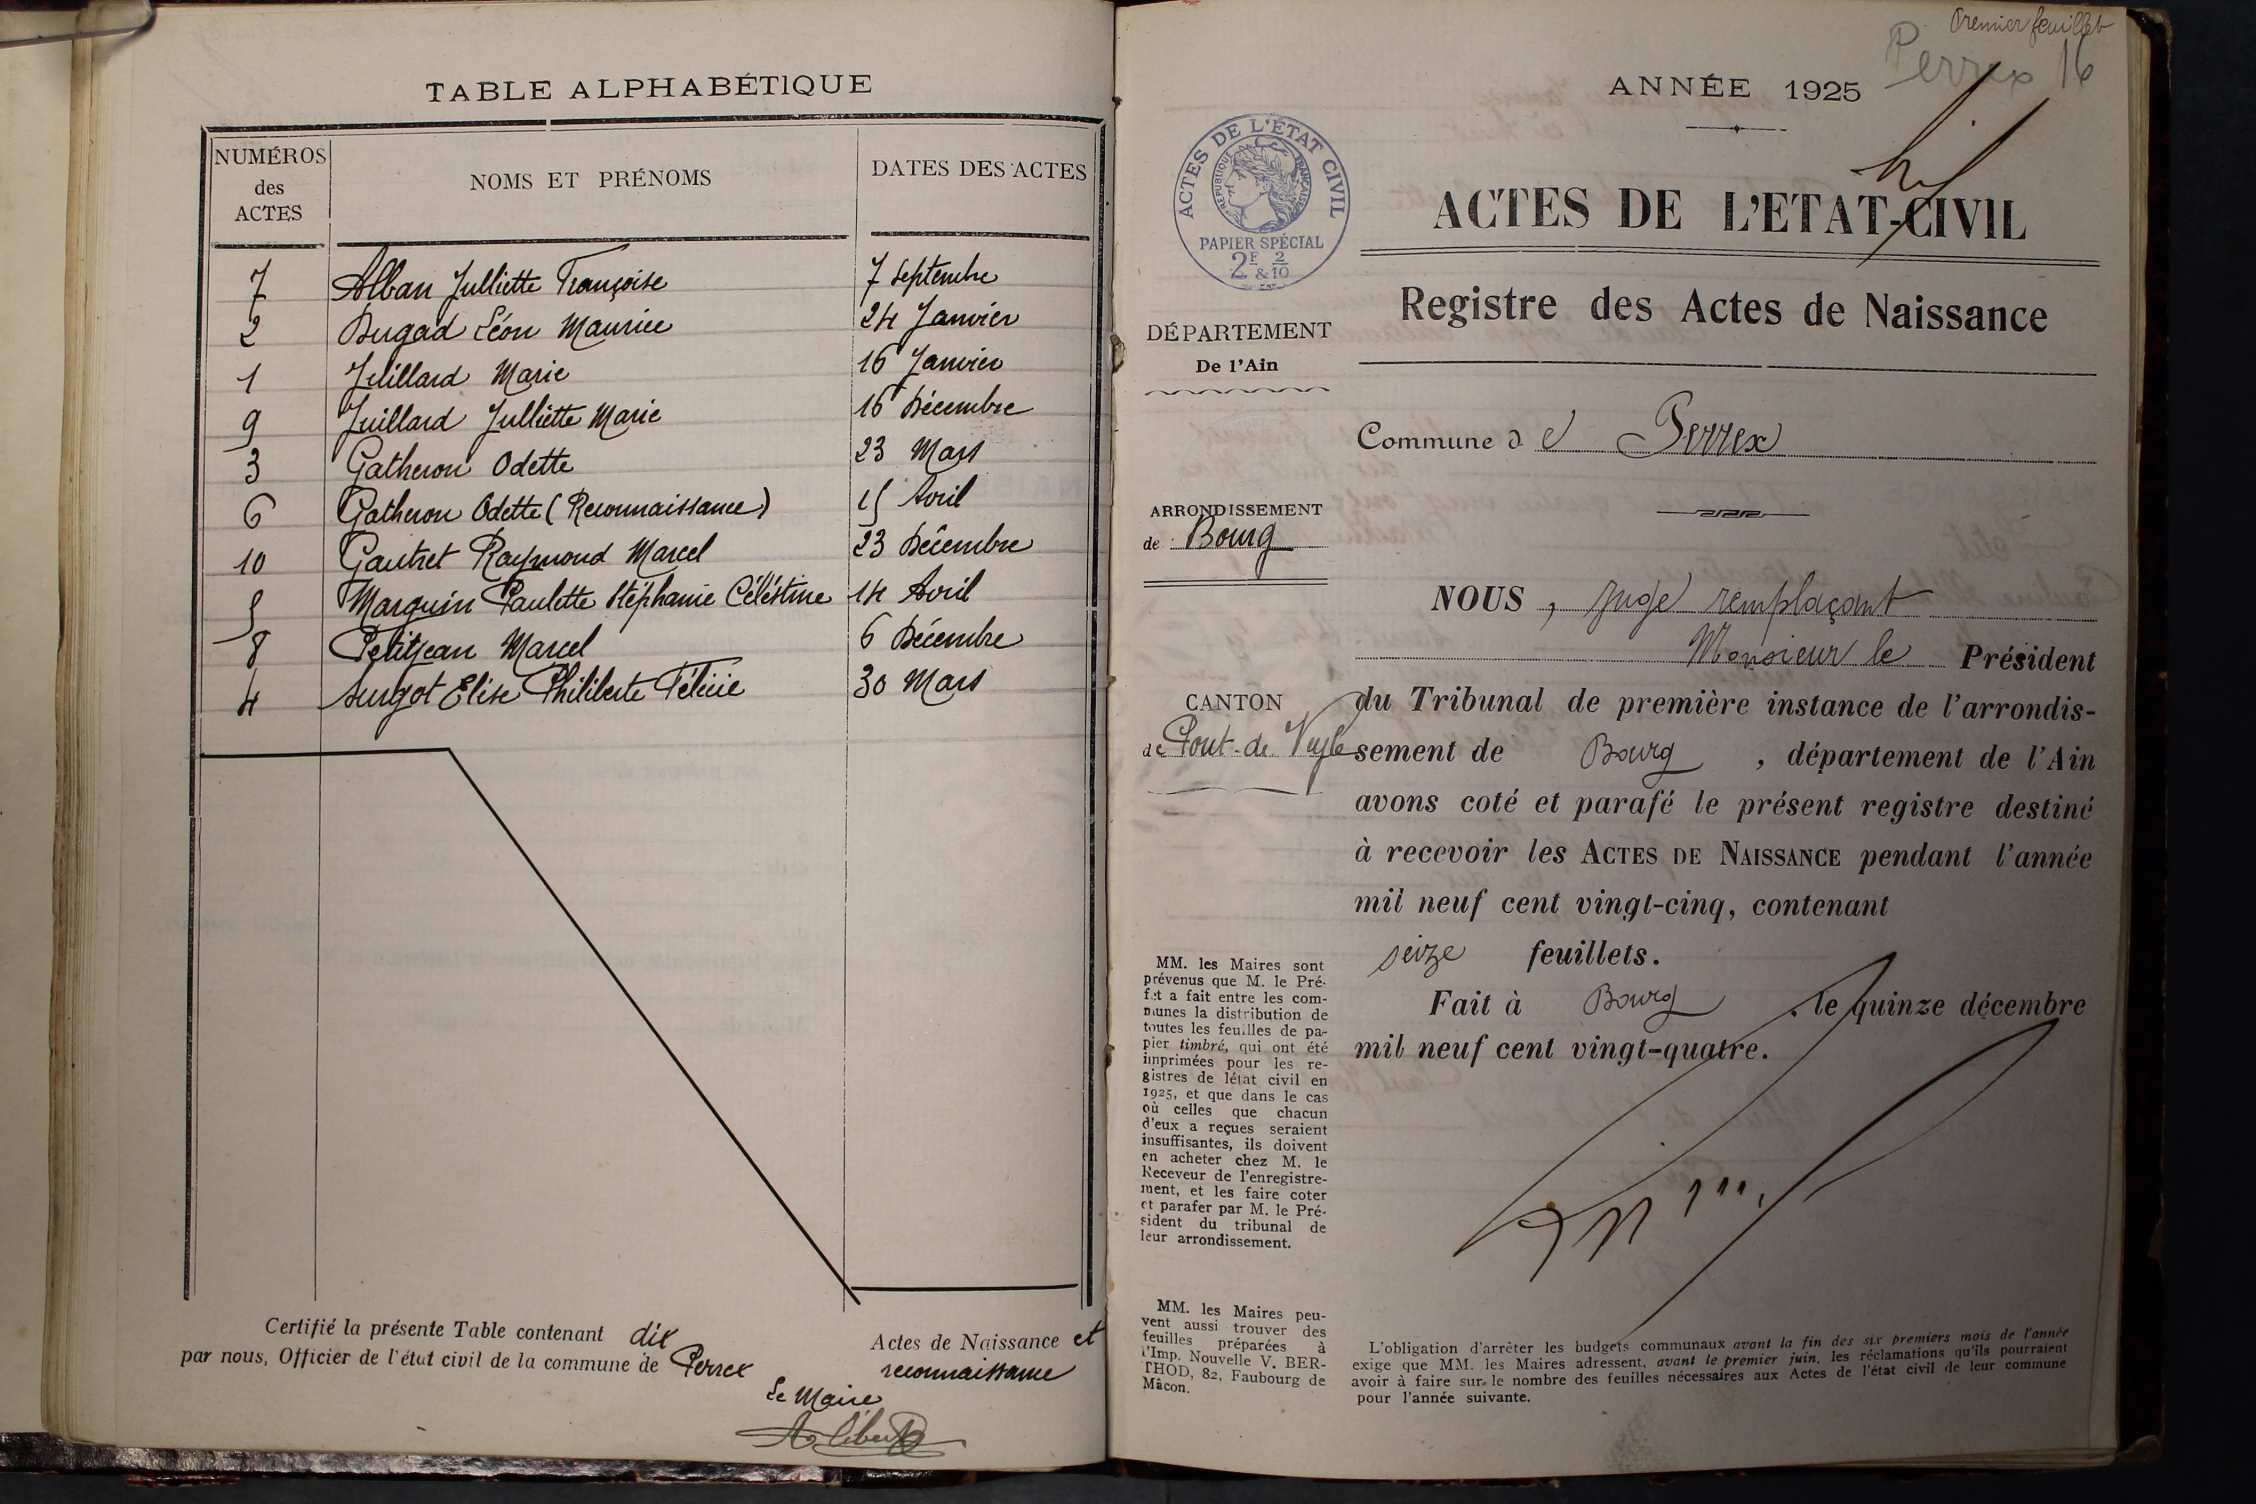 TABLE ALPHABÉTIQUE
NUMÉROS des ACTES
NOMS ET PRÉNOMS
DATES DES ACTES
7 Alban Julliette Françoise 7 Septembre
2 Dugad Léon Maurice 24 Janvier
1 Juillard Marie 16 Janvier
9 Juillard Julliette Marie 16 Décembre
3 Gatheron Odette 23 Mars
6 Gatheron Odette (Reconnaissance) 15 Avril
10 Gautret Raymond Marcel 23 Décembre
5 Marguin Paulette Stéphanie Céléstine 14 Avril
8 Petitjean Marcel 6 Décembre
4 Surgot Elise Philiberte Félicie 30 Mars
Certifié la présente Table contenant dix Actes de Naissance et
par nous, Officier de l'état civil de la commune de Perrex reconnaissance
Le Maire
Premier feuillet
Perrex 16
ANNÉE 1925
ACTES DE L'ÉTAT CIVIL
RÉPUBLIQUE FRANÇAISE
PAPIER SPÉCIAL
2F & 2/10
ACTES DE L'ETAT-CIVIL
Registre des Actes de Naissance
DÉPARTEMENT
De l'Ain
Commune de Perrex
ARRONDISSEMENT
de Bourg
CANTON
de Pont-de-Veyle
NOUS, Juge remplaçant
Monsieur le Président
du Tribunal de première instance de l'arrondis-
sement de Bourg, département de l'Ain
avons coté et parafé le présent registre destiné
à recevoir les ACTES DE NAISSANCE pendant l'année
mil neuf cent vingt-cinq, contenant
seize feuillets.
Fait à Bourg, le quinze décembre
mil neuf cent vingt-quatre.
MM. les Maires sont
prévenus que M. le Pré-
fet a fait entre les com-
munes la distribution de
toutes les feuilles de pa-
pier timbré, qui ont été
imprimées pour les re-
gistres de létat civil en
1925, et que dans le cas
où celles que chacun
d'eux a reçues seraient
insuffisantes, ils doivent
en acheter chez M. le
Receveur de l'enregistre-
ment, et les faire coter
et parafer par M. le Pré-
sident du tribunal de
leur arrondissement.
MM. les Maires peu-
vent aussi trouver des
feuilles préparées à
l'Imp. Nouvelle V. BER-
THOD, 82, Faubourg de
Mâcon.
L'obligation d'arrêter les budgets communaux avant la fin des six premiers mois de l'année
exige que MM. les Maires adressent, avant le premier juin, les réclamations qu'ils pourraient
avoir à faire sur le nombre des feuilles nécessaires aux Actes de l'état civil de leur commune
pour l'année suivante.